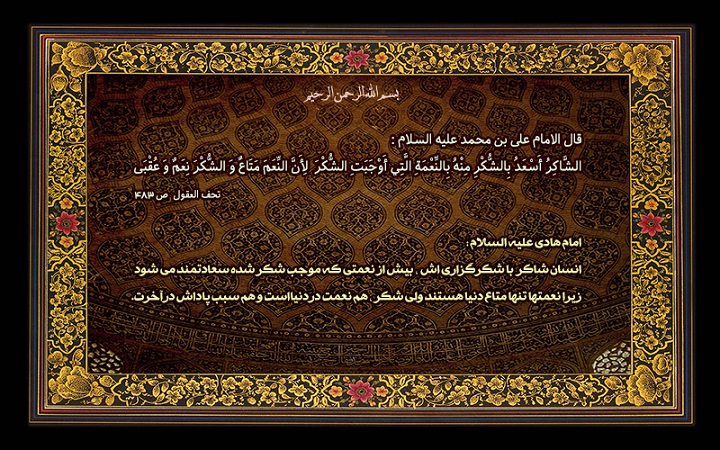 بسم الله الرحمن الرحیم
قال الامام علی بن محمد علیه السلام :
الشّاکِرُ أسْعَدُ بِالشُّکْرِ مِنْهُ بِالنِّعْمَةِ الَّتِي أوْجَبَتِ الشُّکْرَ لِأنَّ النِّعَمَ مَتَاعٌ وَ الشُّکْرَ نِعَمٌ وَ عُقْبَی
تحف العقول ، ص ۴۸۳
امام هادی علیه السلام:
انسان شاکر با شکرگزاری اش ، بیش از نعمتی که موجب شکر شده سعادتمند می شود
زیرا نعمتها تنها متاع دنیا هستند ولی شکر ، هم نعمت در دنیا است و هم سبب پاداش در آخرت.